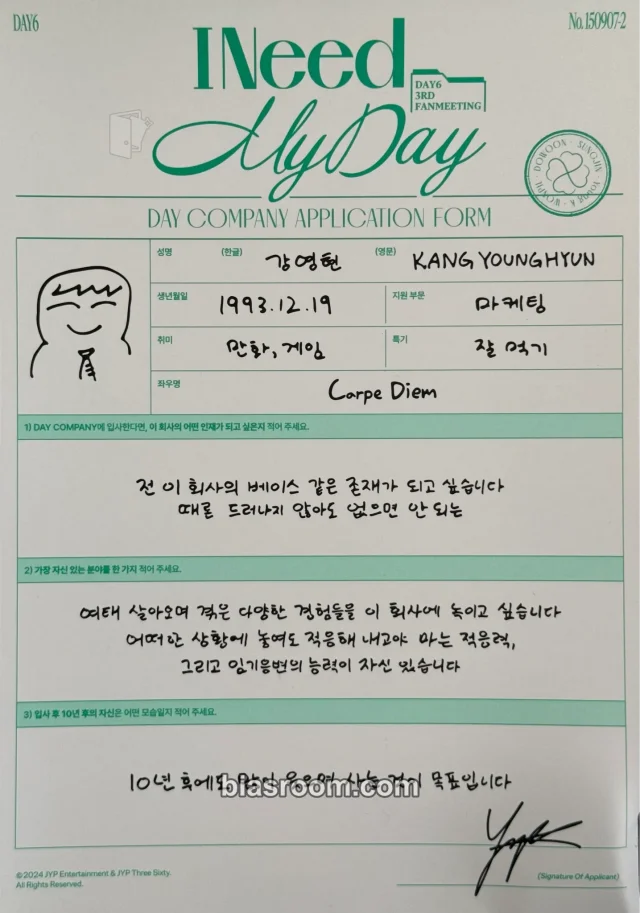 DAY6
No.150907-2
I Need
My Day
DAY6
3RD
FANMEETING
DOWOON · SUNGJIN · YOUNG K · WONPIL
DAY COMPANY APPLICATION FORM
성명 (한글) 강영현 (영문) KANG YOUNGHYUN
생년월일 1993.12.19 지원 부문 마케팅
취미 만화, 게임 특기 잘 먹기
좌우명 Carpe Diem
1) DAY COMPANY에 입사한다면, 이 회사의 어떤 인재가 되고 싶은지 적어 주세요.
전 이 회사의 베이스 같은 존재가 되고 싶습니다
때론 드러나지 않아도 없으면 안 되는
2) 가장 자신 있는 분야를 한 가지 적어 주세요.
여태 살아오며 겪은 다양한 경험들을 이 회사에 녹이고 싶습니다
어떠한 상황에 놓여도 적응해 내고야 마는 적응력,
그리고 임기응변의 능력이 자신 있습니다
3) 입사 후 10년 후의 자신은 어떤 모습일지 적어 주세요.
10년 후에도 많이 웃으며 사는 것이 목표입니다
biasroom.com
©2024 JYP Entertainment & JYP Three Sixty.
All Rights Reserved.
(Signature Of Applicant)